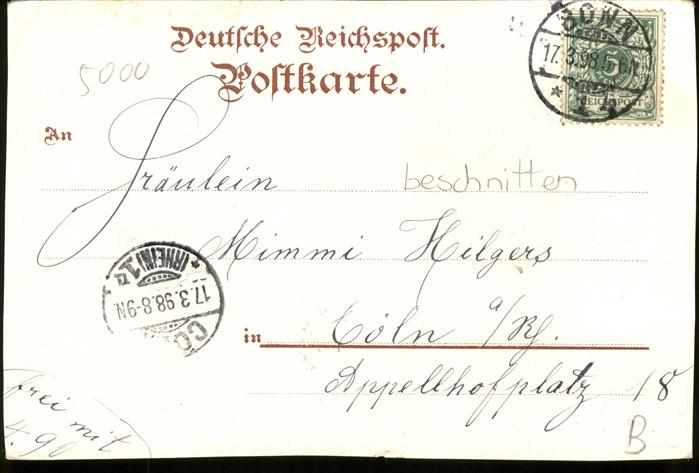 Deutsche Reichspost.
Postkarte.
5000
BONN
17.3.98.5-6N.
5
REICHSPOST
An
Fräulein
beschnitten
Mimmi Hilgers
(RHEIN) 1
17.3.98.8-9N.
CÖ
in Cöln a/Rh.
Appellhofplatz 18
frei mit
4.90
B